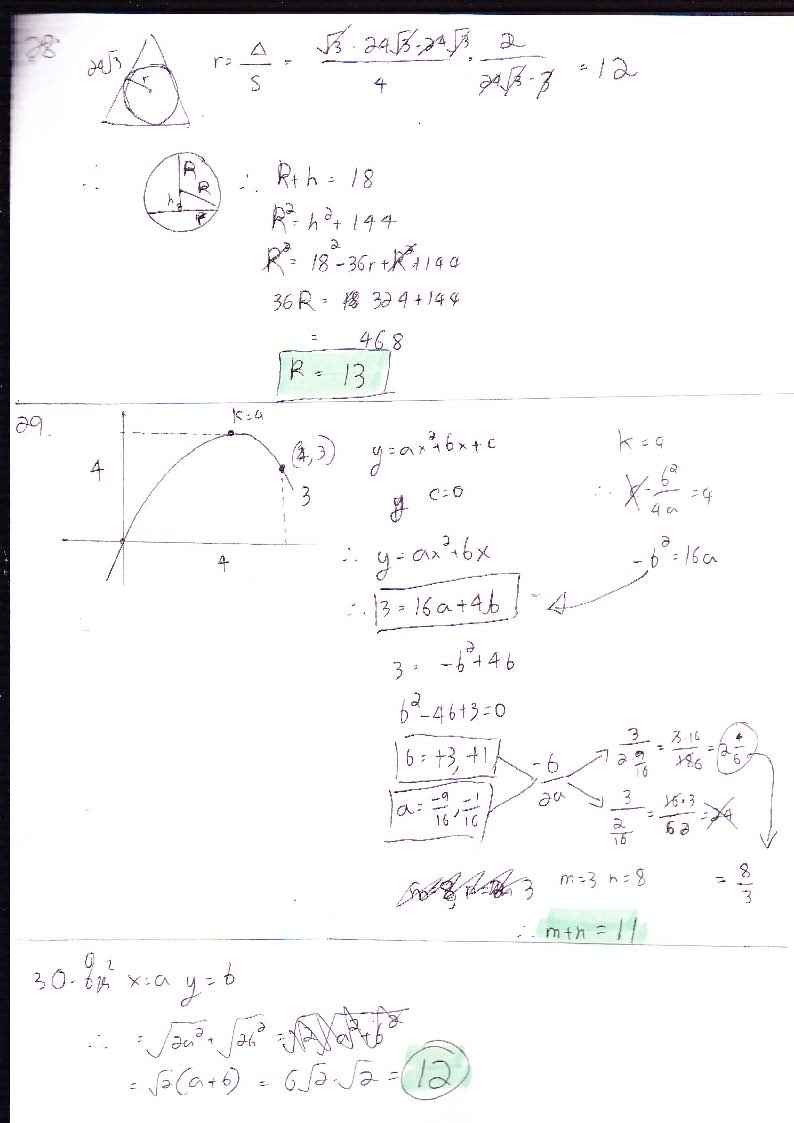 28
24√3
r
r = Δ/S = (√3 · 24√3 · 24√3)/4 · 2/(24√3 · 3) = 12
∴
R
R
h
r
∴ R+h = 18
R² = h² + 144
R² = 18² - 36r + R² + 144
36R = 324 + 144
= 468
R = 13
29.
k=4
(4, 3)
4
3
4
y = ax² + bx + c
k = 4
y c=0
∴ -b²/4a = 4
∴ y = ax² + bx
-b² = 16a
∴ 3 = 16a + 4b
3 = -b² + 4b
b² - 4b + 3 = 0
b = +3, +1
a = -9/16, -1/16
-b/2a
3/(2 9/16) = 3·16/186 = 2 4/6
3/(2/16) = 16·3/2 = 24
= 8/3
3 m=3 n=8
∴ m+n = 11
30. x=a y=b
∴ = √2a² + √2b² = √2√a²+b²
= √2(a+b) = 6√2·√2 = 12